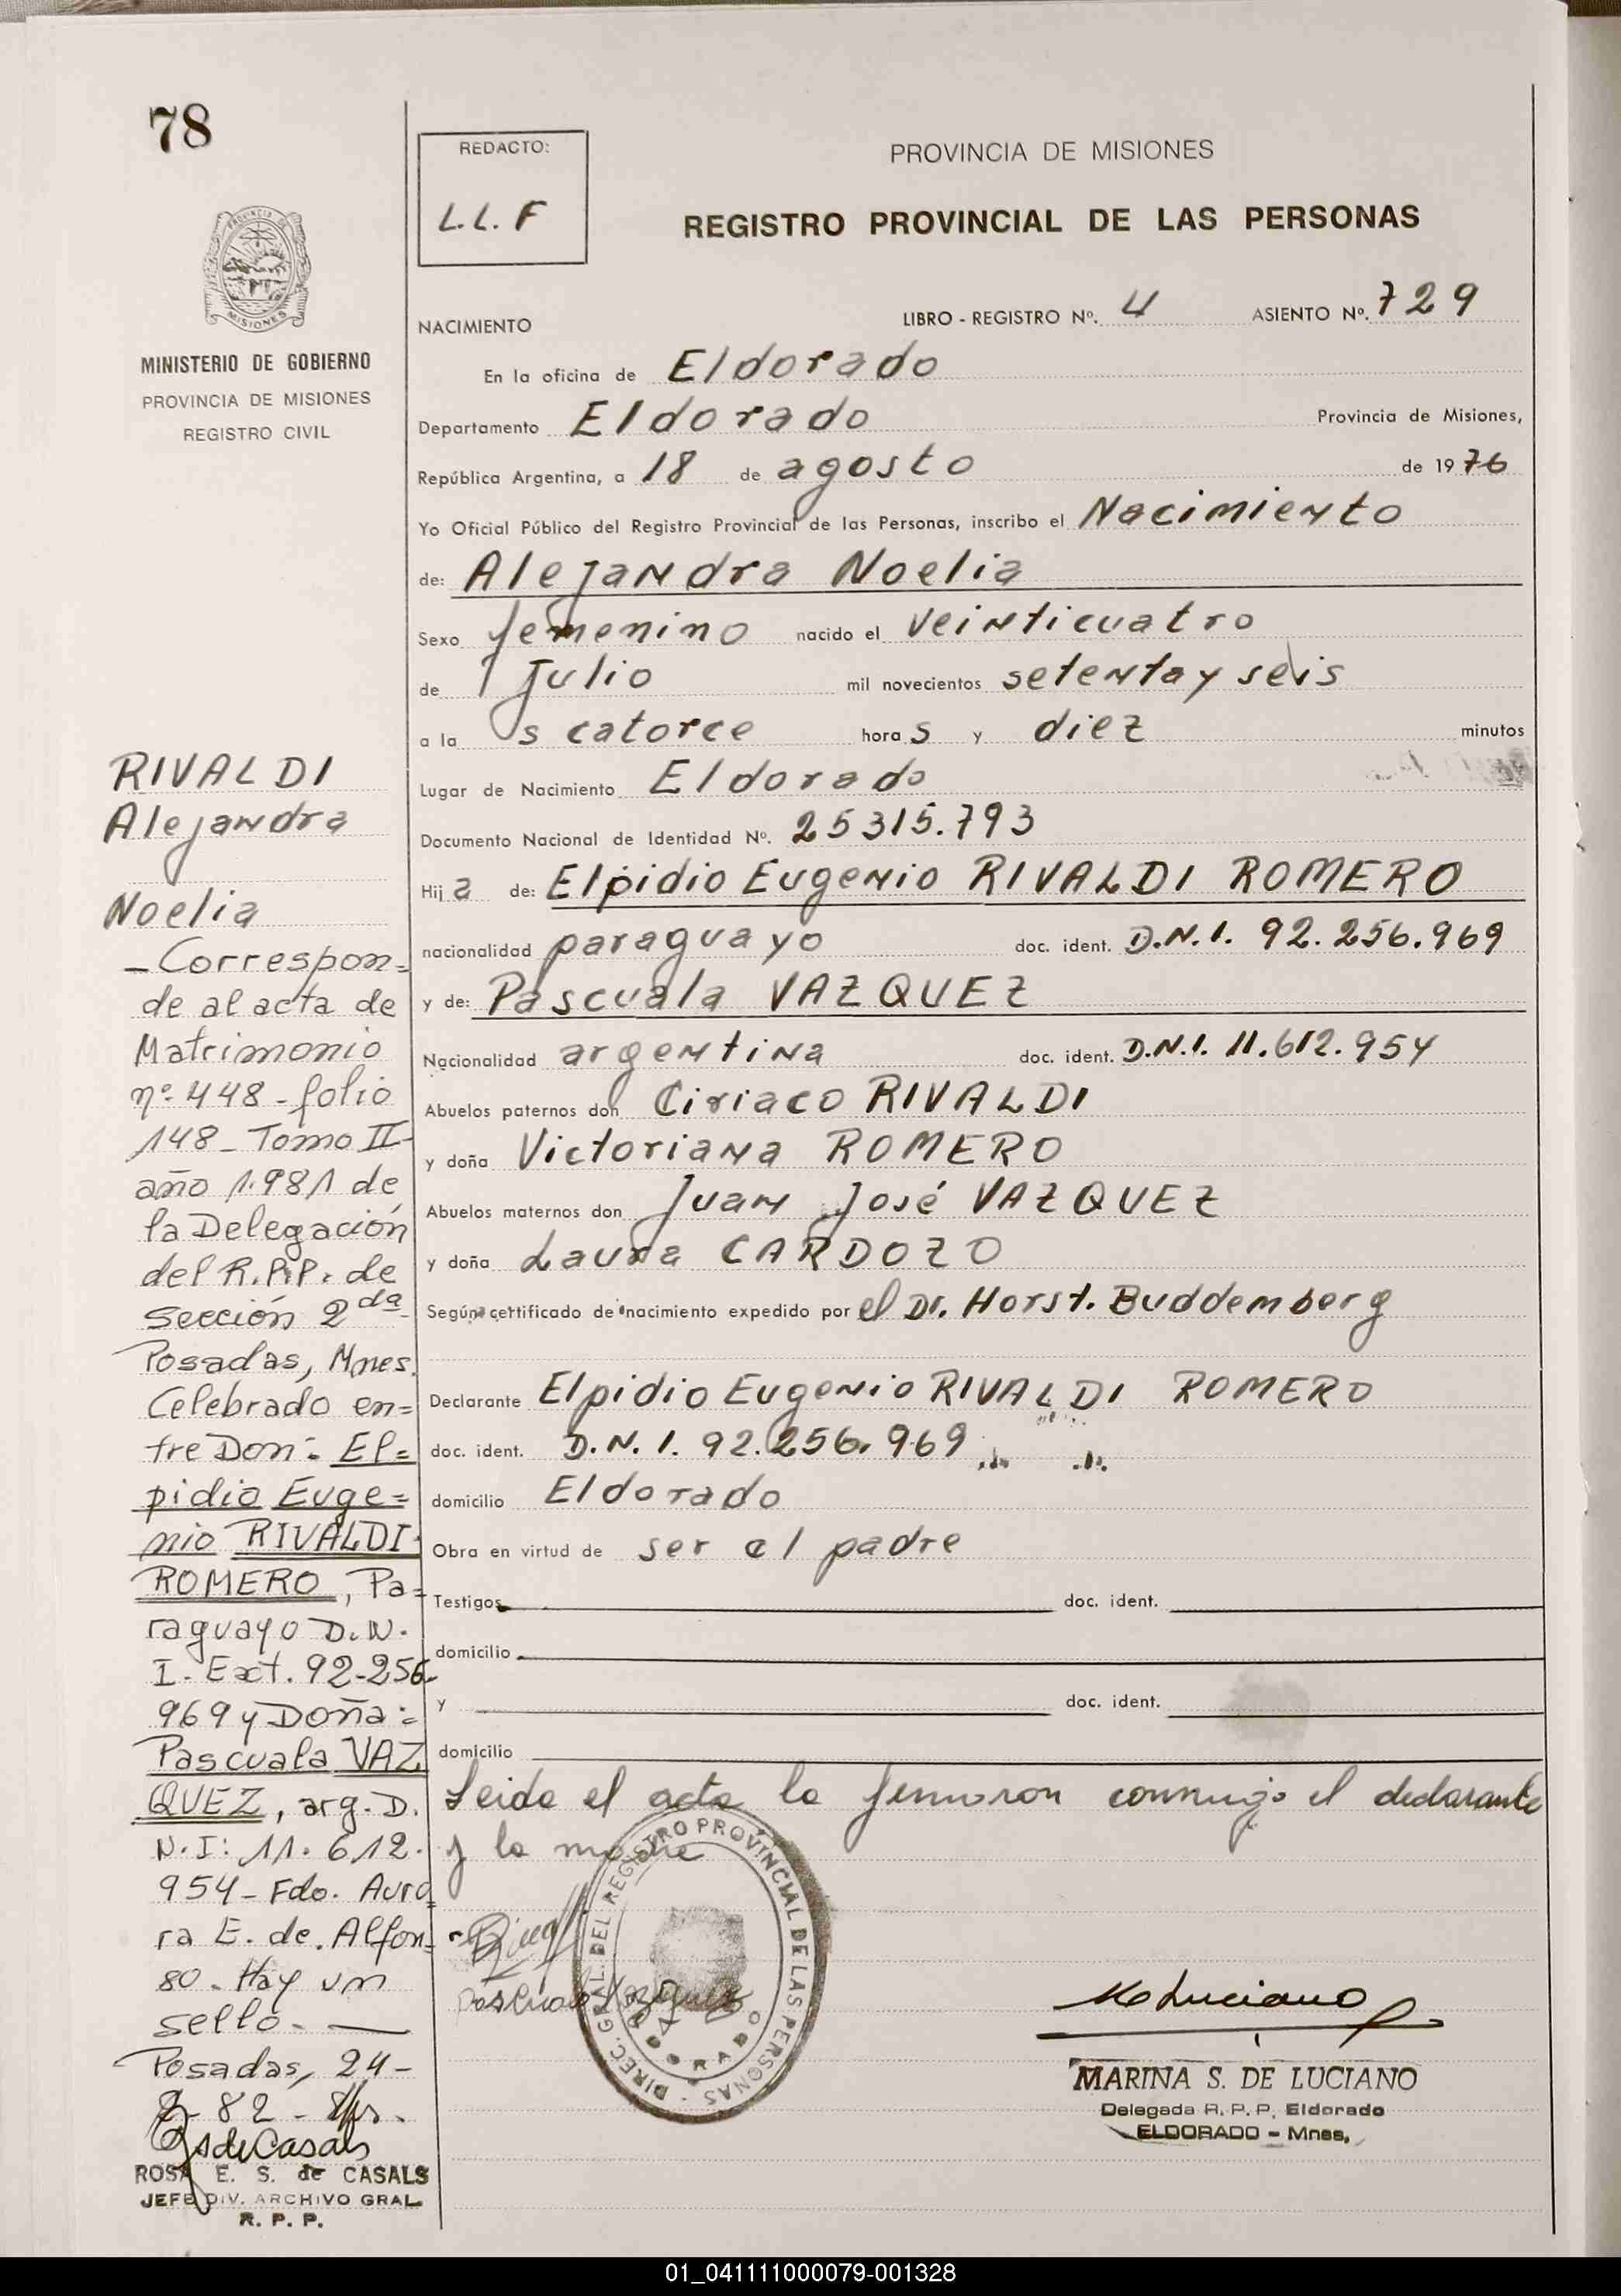 78
REDACTO:
L.L.F
PROVINCIA DE MISIONES
REGISTRO PROVINCIAL DE LAS PERSONAS
MISIONES
MINISTERIO DE GOBIERNO
PROVINCIA DE MISIONES
REGISTRO CIVIL
NACIMIENTO LIBRO - REGISTRO Nº. 4 ASIENTO Nº. 729
En la oficina de Eldorado
Departamento Eldorado Provincia de Misiones,
República Argentina, a 18 de agosto de 1976
Yo Oficial Público del Registro Provincial de las Personas, inscribo el Nacimiento
de: Alejandra Noelia
Sexo femenino nacido el veinticuatro
de Julio mil novecientos setenta y seis
a la s catorce hora s y diez minutos
Lugar de Nacimiento Eldorado
Documento Nacional de Identidad Nº. 25315.793
Hij a de: Elpidio Eugenio RIVALDI ROMERO
nacionalidad paraguayo doc. ident. D.N.I. 92.256.969
y de: Pascuala VAZQUEZ
Nacionalidad argentina doc. ident. D.N.I. 11.612.954
Abuelos paternos don Ciriaco RIVALDI
y doña Victoriana ROMERO
Abuelos maternos don Juan José VAZQUEZ
y doña Laura CARDOZO
Según certificado de nacimiento expedido por el Dr. Horst. Buddemberg
Declarante Elpidio Eugenio RIVALDI ROMERO
doc. ident. D.N.I. 92.256.969
domicilio Eldorado
Obra en virtud de ser el padre
Testigos doc. ident.
domicilio
y doc. ident.
domicilio
Leida el acta la firmaron conmigo el declarante
y la madre
Pascuala Vazquez
DIREC. GRAL. DEL REGISTRO PROVINCIAL DE LAS PERSONAS -
ELDORADO
MdeLuciano
MARINA S. DE LUCIANO
Delegada R. P. P. Eldorado
ELDORADO - Mnes,
RIVALDI
Alejandra
Noelia
- Correspon=
de al acta de
Matrimonio
nº 448 - folio
148 - Tomo II -
año 1.981 de
la Delegación
del R.P.P. de
Sección 2da
Posadas, Mnes.
Celebrado en=
tre Don: El=
pidio Euge=
nio RIVALDI
ROMERO, Pa=
raguayo D.N.
I. Ext. 92-256-
969 y Doña:
Pascuala VAZ
QUEZ, arg. D.
N.I: 11.612.
954 - Fdo. Auro=
ra E. de Alfon=
so. Hay un
sello. —
Posadas, 24-
8-82 -
RSdeCasals
ROSA E. S. de CASALS
JEFE DIV. ARCHIVO GRAL.
R. P. P.
01_041111000079-001328